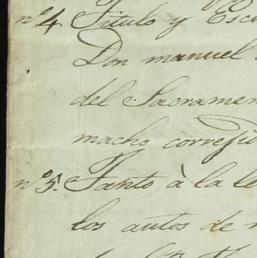 nº 4. Titulo y Esc
Don manuel
del Sacramen
macho correspo
nº 5. Tanto à la le
los autos de